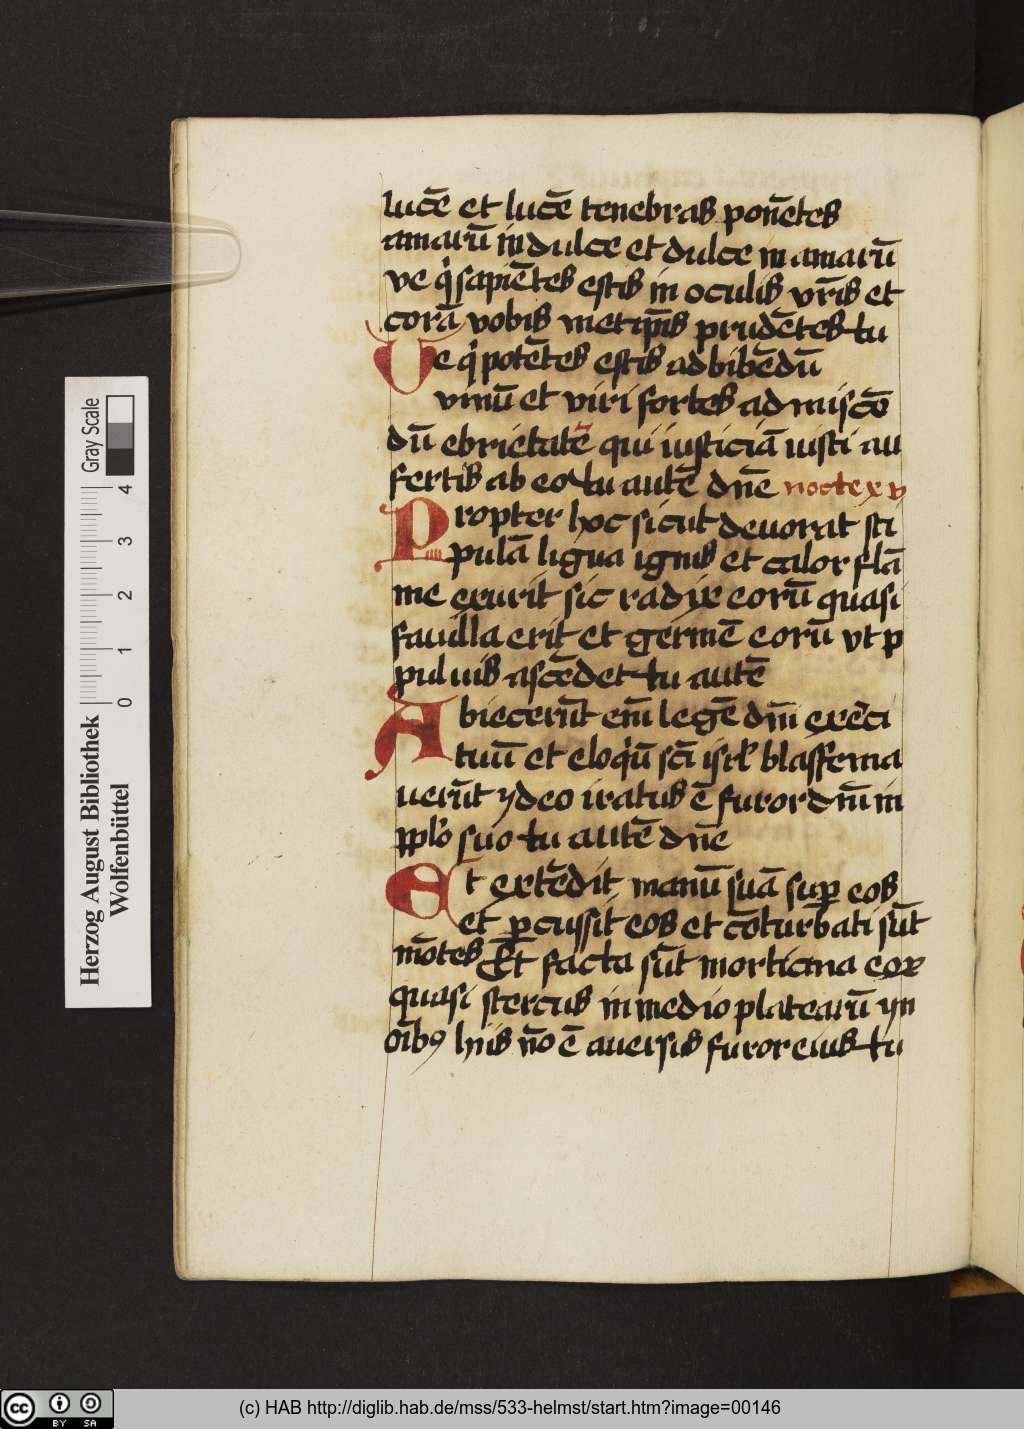 lucē et lucē tenebras ponētes
amarū in dulce et dulce in amarū
ve qͥ sapiētes estis in oculis vr̄is et
corā vobis metip̄is prudētes tu
Ve qͥ potētes estis ad bibēdū
vinū et viri fortes ad miscē
dū ebrietatē qui iusticiā iusti au
fertis ab eo tu autē dn̄e noctex v
Propter hoc sicut deuorat sti
pulā ligua ignis et calor flā
me exurit sic radix eorū quasi
fauilla erit et germē eorū vt p
puluis ascēdet tu autē
Abiecerūt em̄ legē dn̄i exerci
tuū et eloqͥū sc̄i isrl̄ blasfema
uerūt ydeo iratus ē furor dn̄i in
ppl̄o suo tu autē dn̄e
Et extēdit manū suā suꝑ eos
et ꝑcussit eos et cōturbati sūt
mōtes Et facta sūt morticina eoꝝ
quasi stercus in medio platearū yn
oīb9 hiis nō ē auersus furor eius tu
Gray Scale
0 1 2 3 4
Herzog August Bibliothek
Wolfenbüttel
cc BY SA
(c) HAB http://diglib.hab.de/mss/533-helmst/start.htm?image=00146